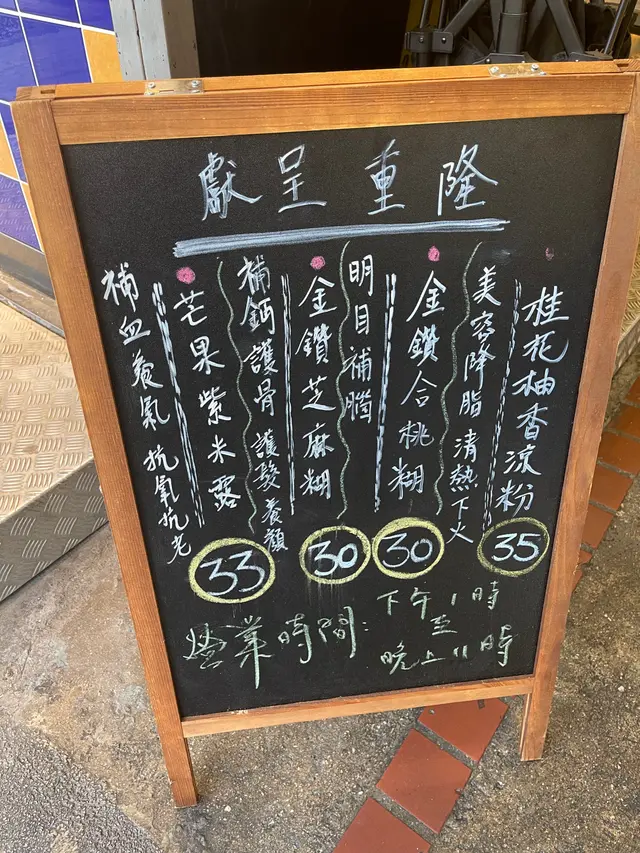 隆重呈獻
桂花柚香涼粉
35
美容降脂 清熱下火
金鑽合桃糊
30
明目補腦
金鑽芝麻糊
30
補鈣護骨 護髮養顏
芒果紫米露
33
補血養氣 抗氧抗老
營業時間:
下午1時
至
晚上11時